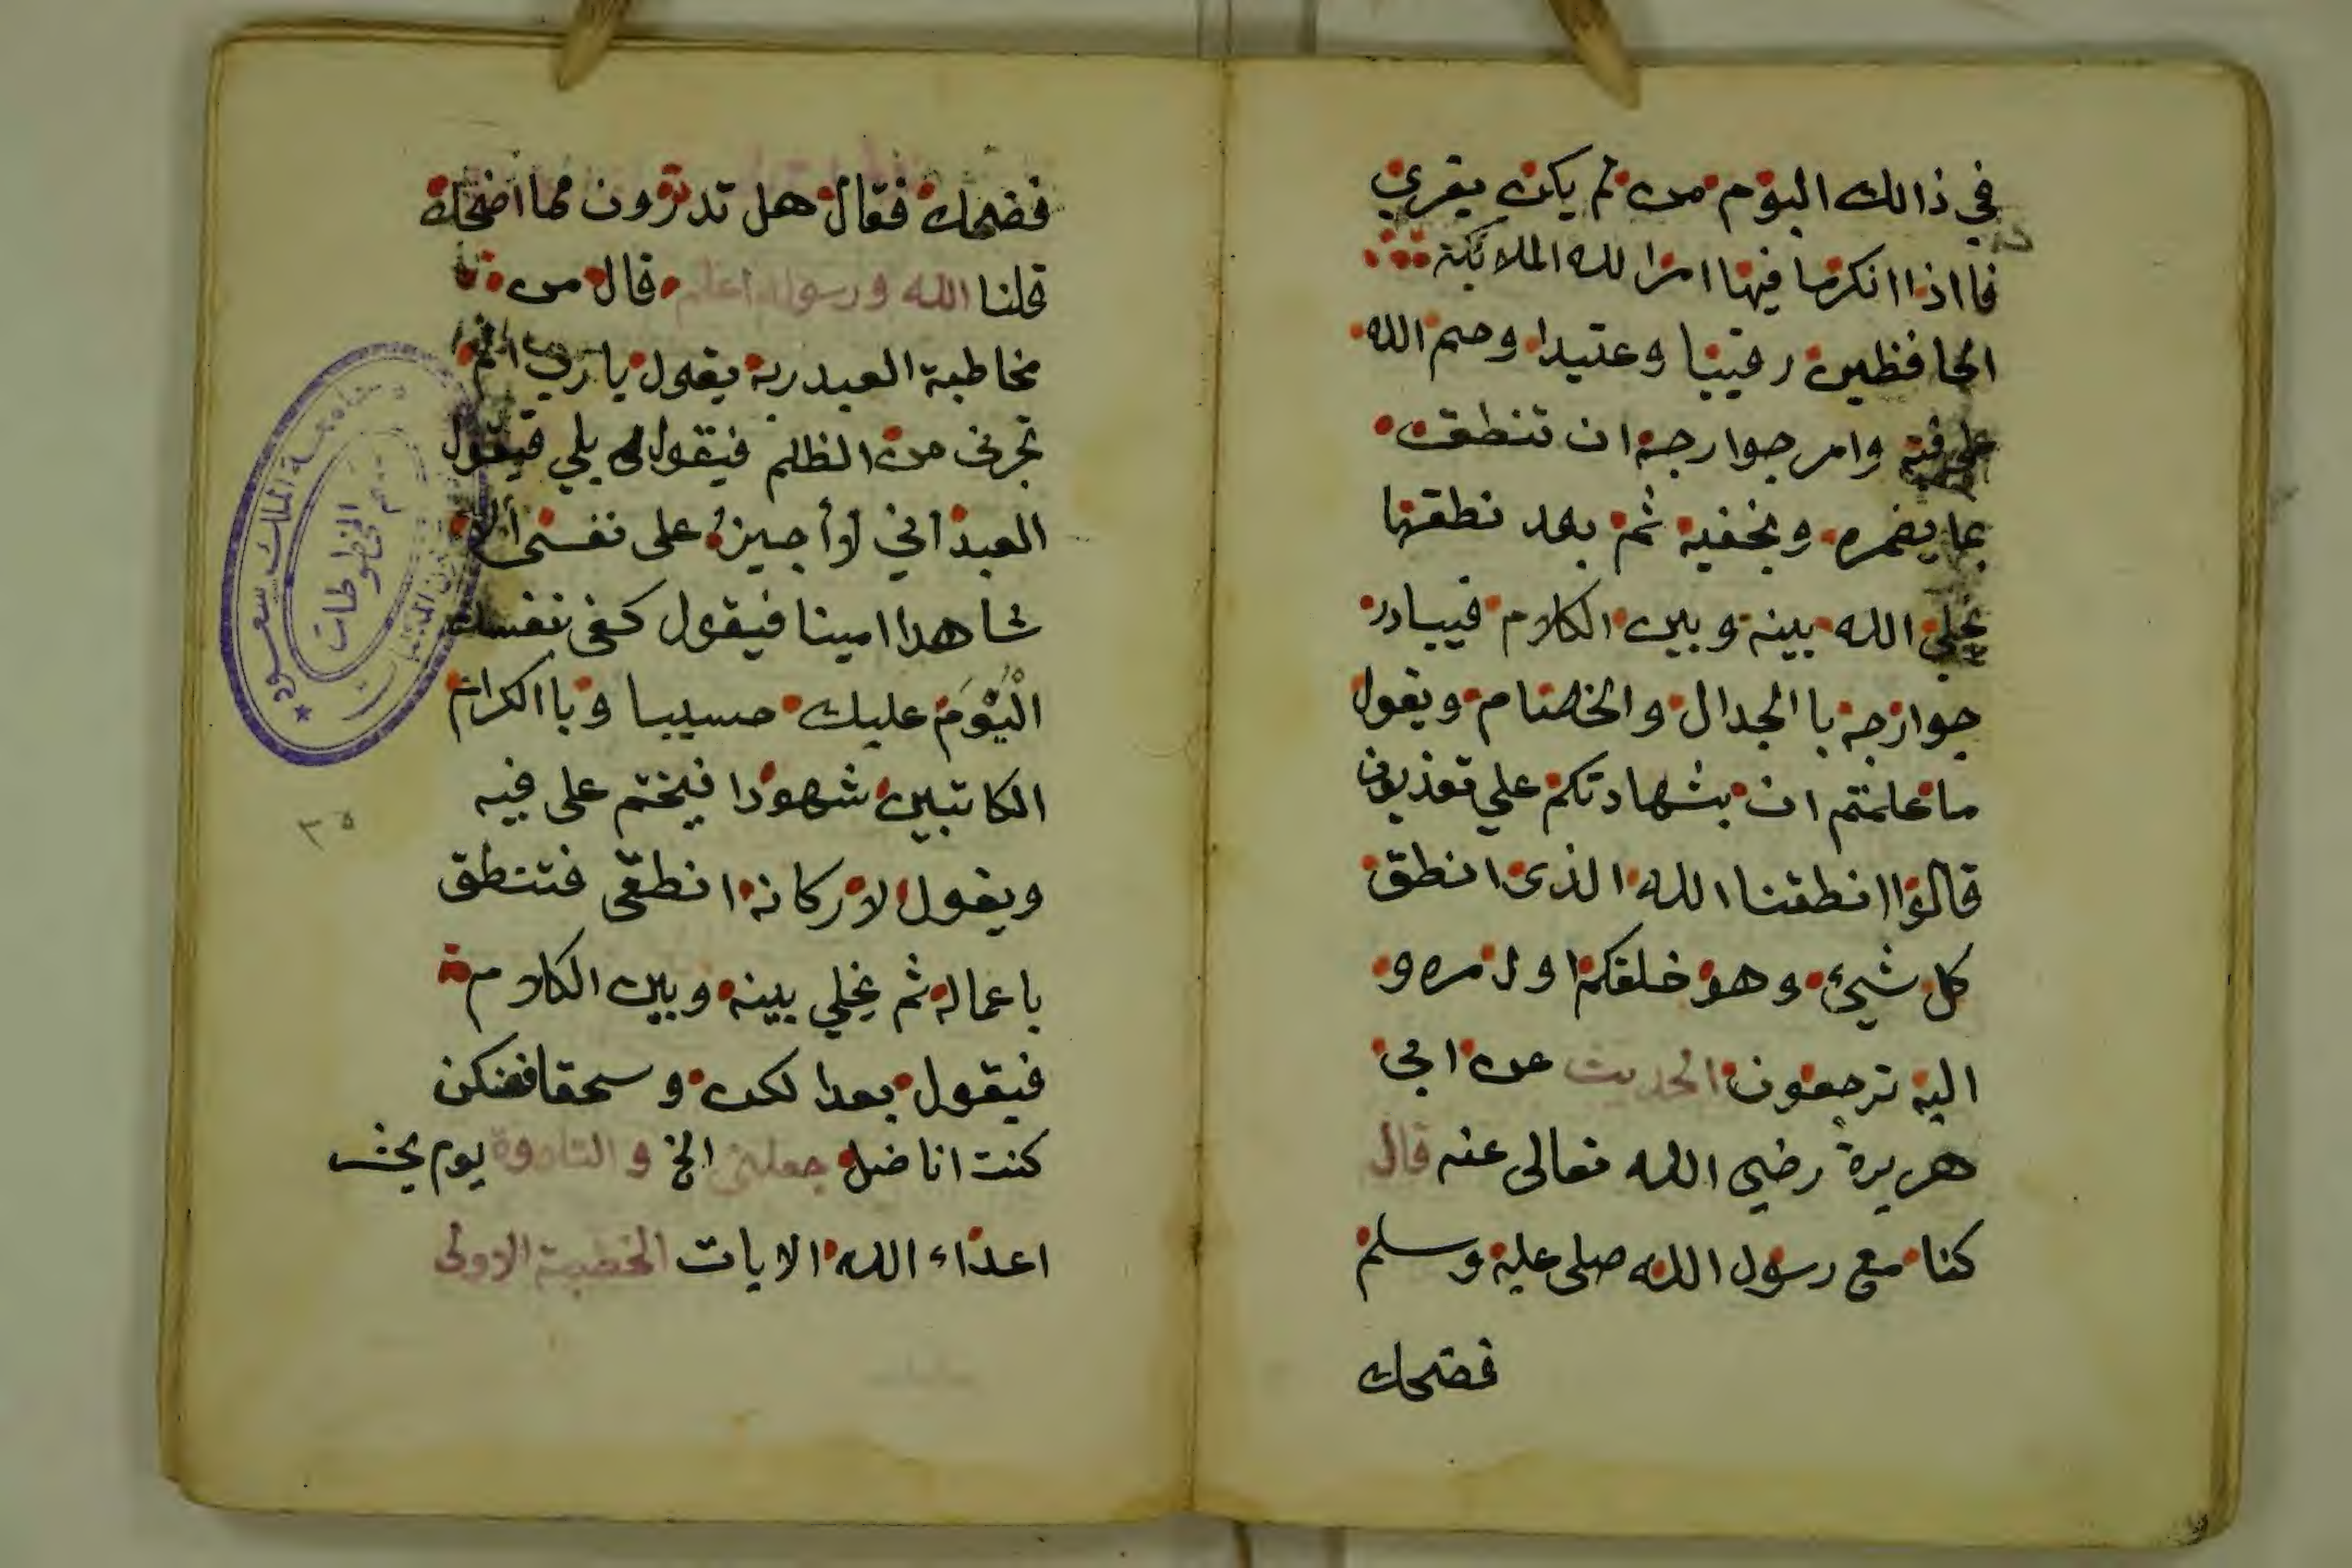 في ذالك اليوم من لم يكن يقري
فااذا انكرما فيها امرا لله الملائكة
الحافظين رقيبا وعتيدا وختم الله
على فيه وامر جوارحه ان تنطق
بما يضمره ويخفيه ثم بعد نطقها
يخلي الله بينه وبين الكلام فيبادر
جوارحه باالجدال والخصام ويقول
ما علمتم ان بشهادتكم علي تعذبون
قالوا انطقنا الله الذى انطق
كل شيء وهو خلقكم اول مره و
اليه ترجعون الحديث عن ابي
هريرة رضي الله تعالى عنه قال
كنا مع رسول الله صلى عليه وسلم
فضحك
فضحك فقال هل تدرون مما اضحك
قلنا الله ورسوله اعلم قال من
مخاطبة العبد ربه يقول يا رب الم
تجرني من الظلم فيقول بلي فيقول
العبد اني لا أجيز على نفسي ألا
شاهدا امينا فيقول كفى بنفسك
الْيَوْمَ عليك حسيبا و باالكرام
الكاتبين شهودا فيختم على فيه
ويقول لاركانه انطقى فتنطق
باعماله ثم يخلي بينه وبين الكلام
فيقول بعدا لكن و سحقا فعنكن
كنت اناضل جعلني الخ و التلاوة يوم يحشر
اعداء الله الايات الخطبة الاولى
جامعة الملك سعود
قسم المخطوطات
٣٥